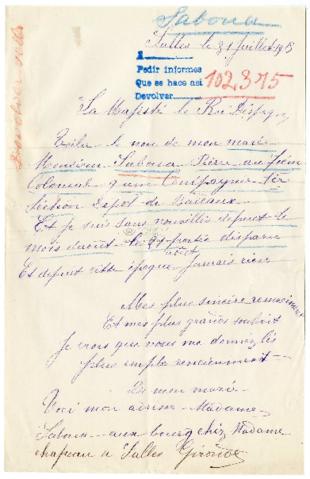 Saboua
Salles le 31 Juillet 1915
A
Pedir informes
Que se hace así
Devolver
102,315
Devolver
Sa Majesté le Roi D'Espagne
le nom de mon mari
Monsieur Saboua Pierre au
Colonial 9 une Compagnie 1er
Section Depot de
Et je suis sans nouvelles depuis le
mois d'août le portée disparu
août
Et depuis cette époque Jamais rien
Mes plus sincère remerciment
Et mes plus grands souhait
Je crois que vous me donnerez les
plus emple renseinement
De mon mari
Voci mon adresse Madame
Saboua aux bourg chez Madame
chapeau a Salles Gironde